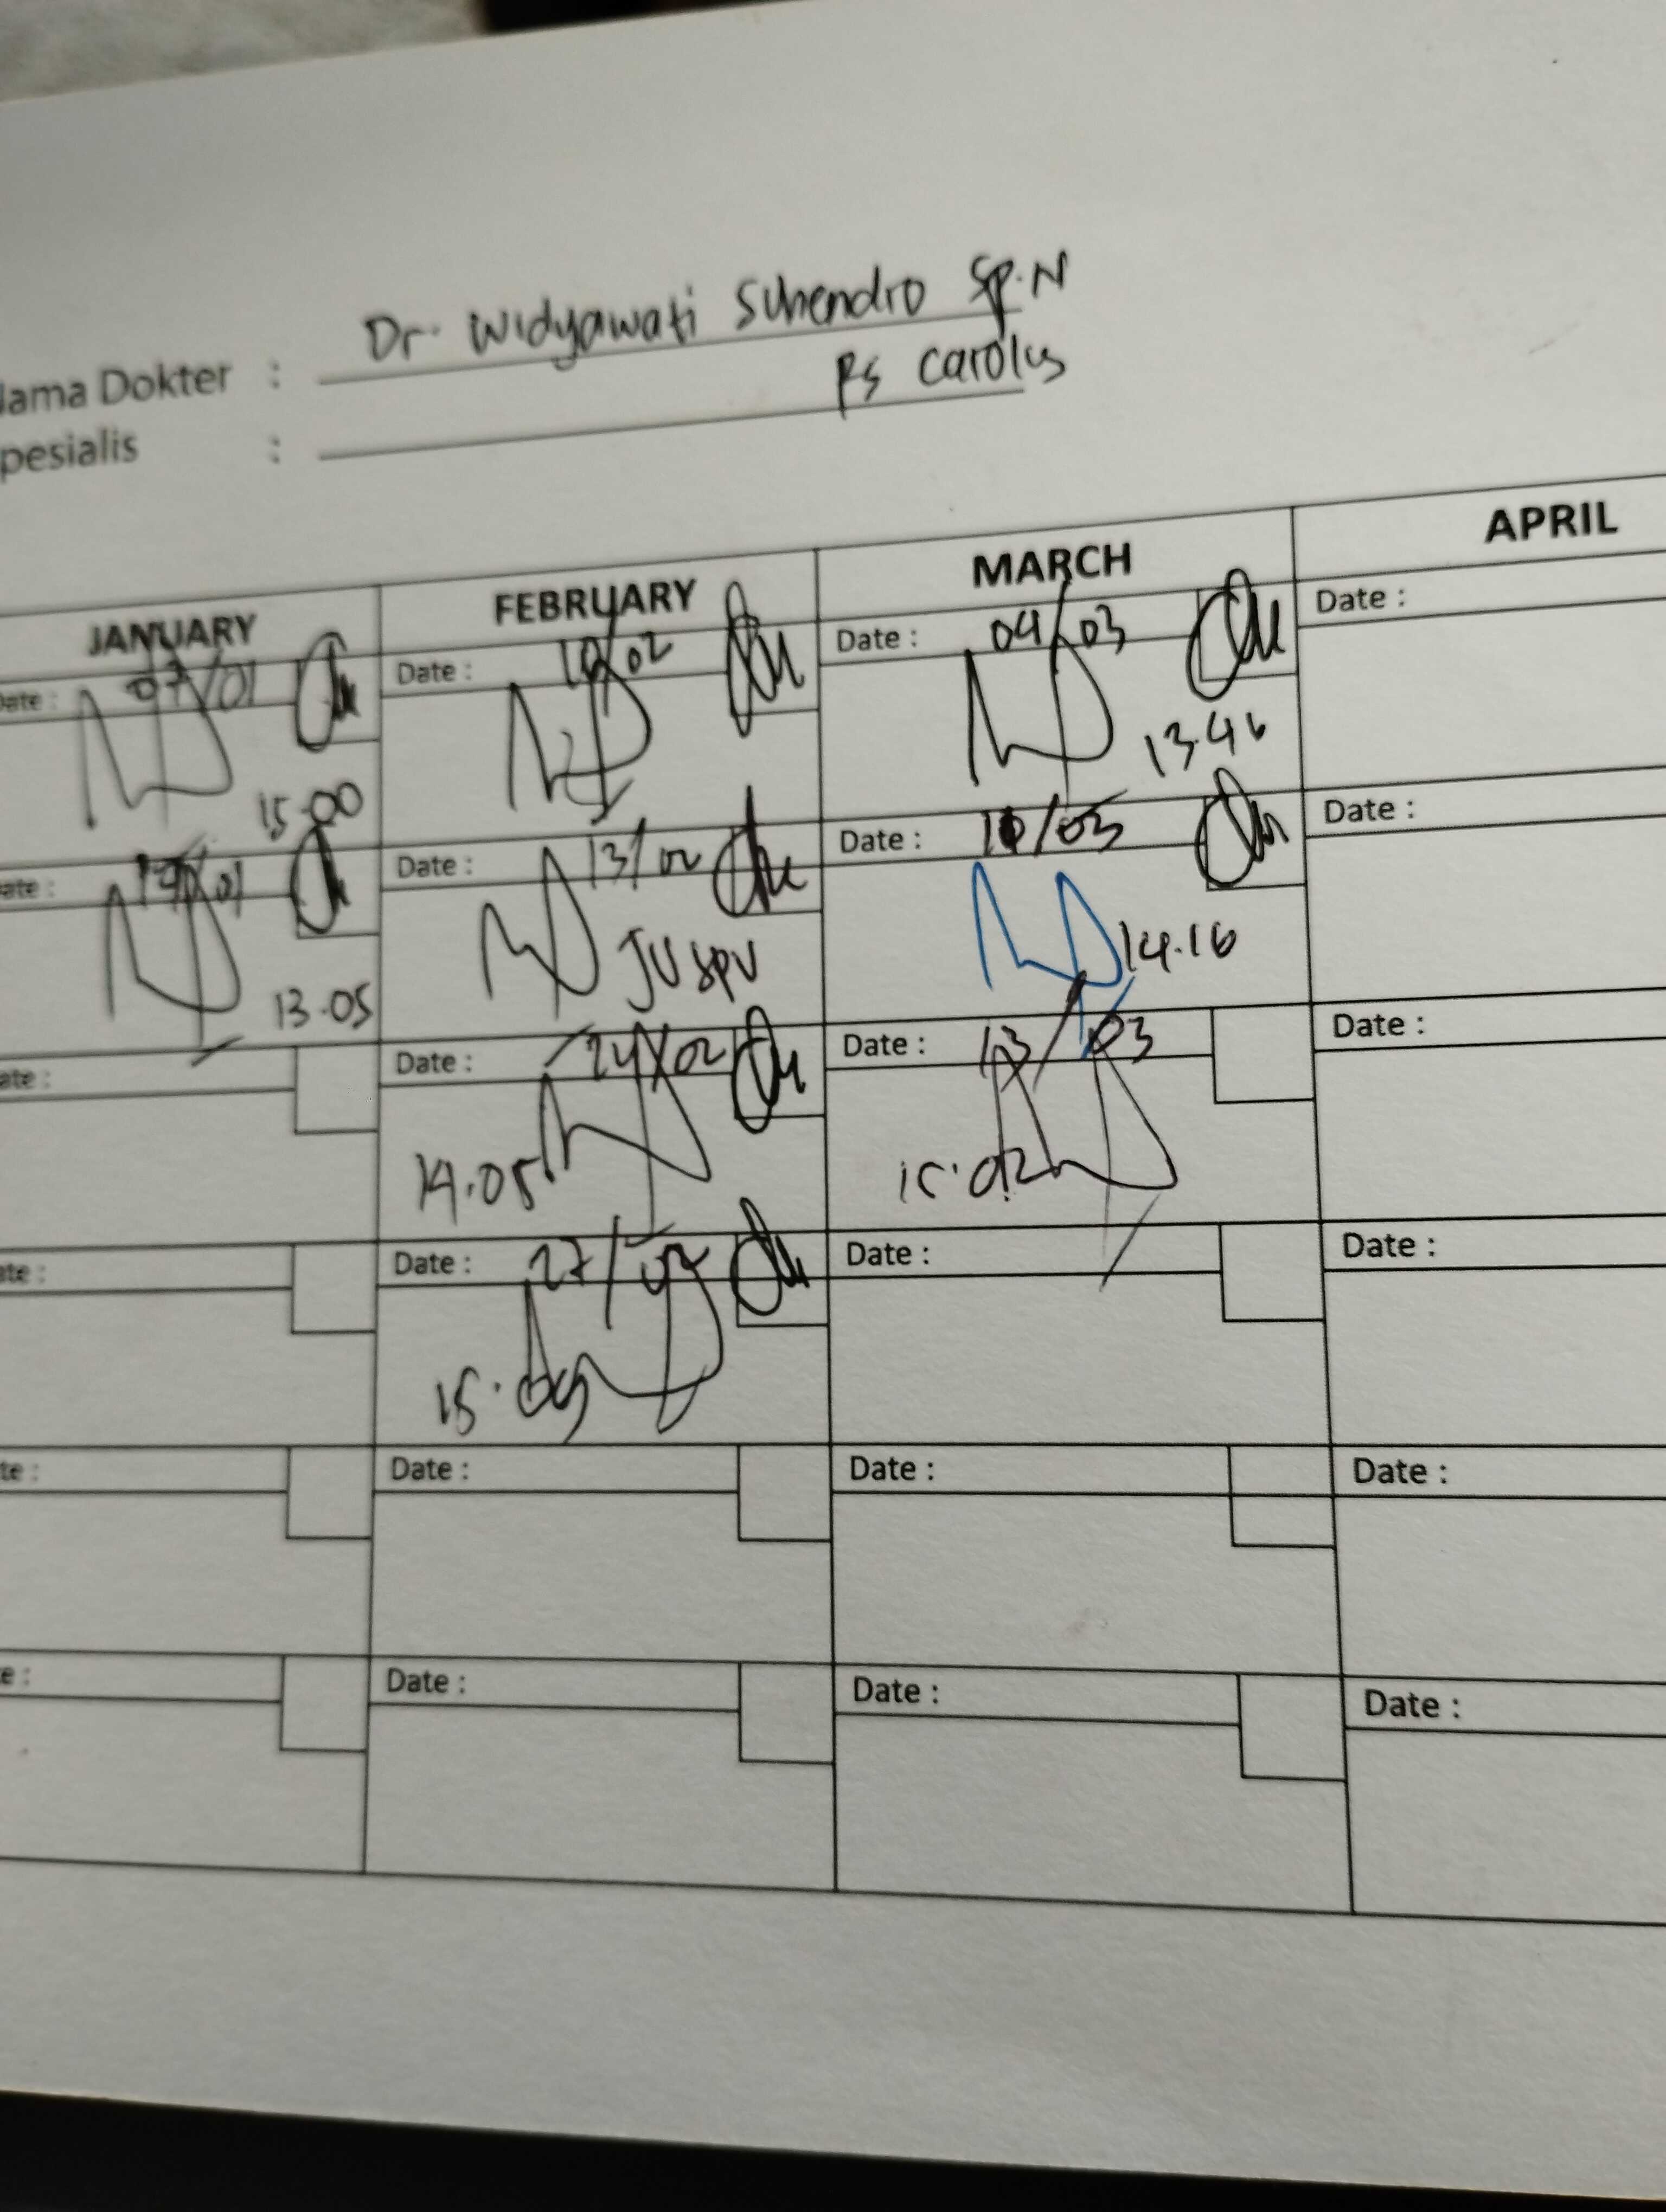 Dr. Widyawati Suhendro Sp.N
ama Dokter :
Rs Carolus
pesialis :
JANUARY FEBRUARY MARCH APRIL
ate : 07/01 Date : 10/02 Date : 04/03 Date :
15.00 13.46
ate : /01 Date : 13/02 Date : 10/03 Date :
13.05 JV SPV 14.16
ate : Date : 24/02 Date : 13/03 Date :
14.05 15.02
ate : Date : 27/02 Date : Date :
15.
te : Date : Date : Date :
e : Date : Date : Date :